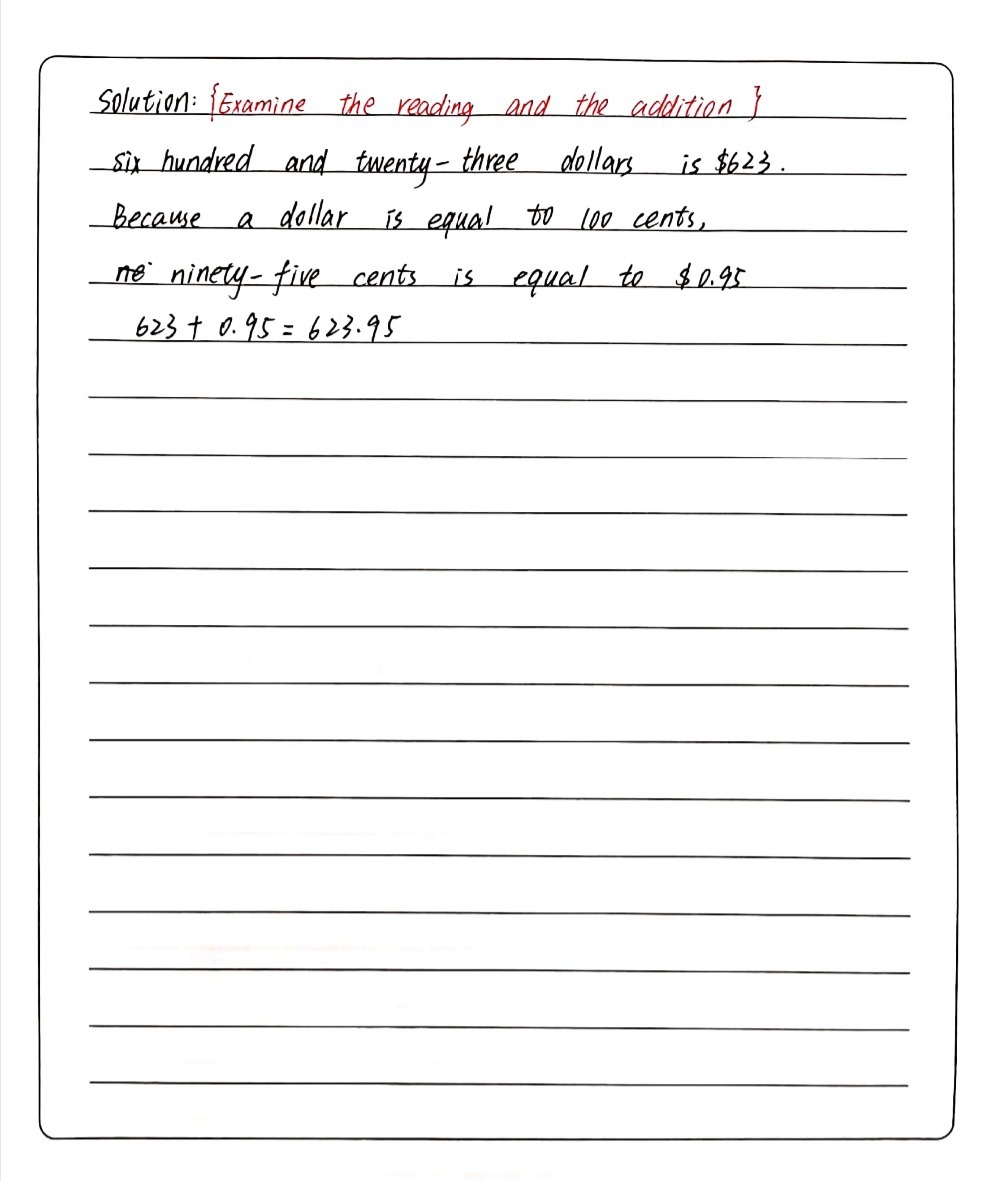 Solution: {Examine the reading and the addition}
six hundred and twenty-three dollars is $623.
Because a dollar is equal to 100 cents,
ninety-five cents is equal to $0.95
623 + 0.95 = 623.95